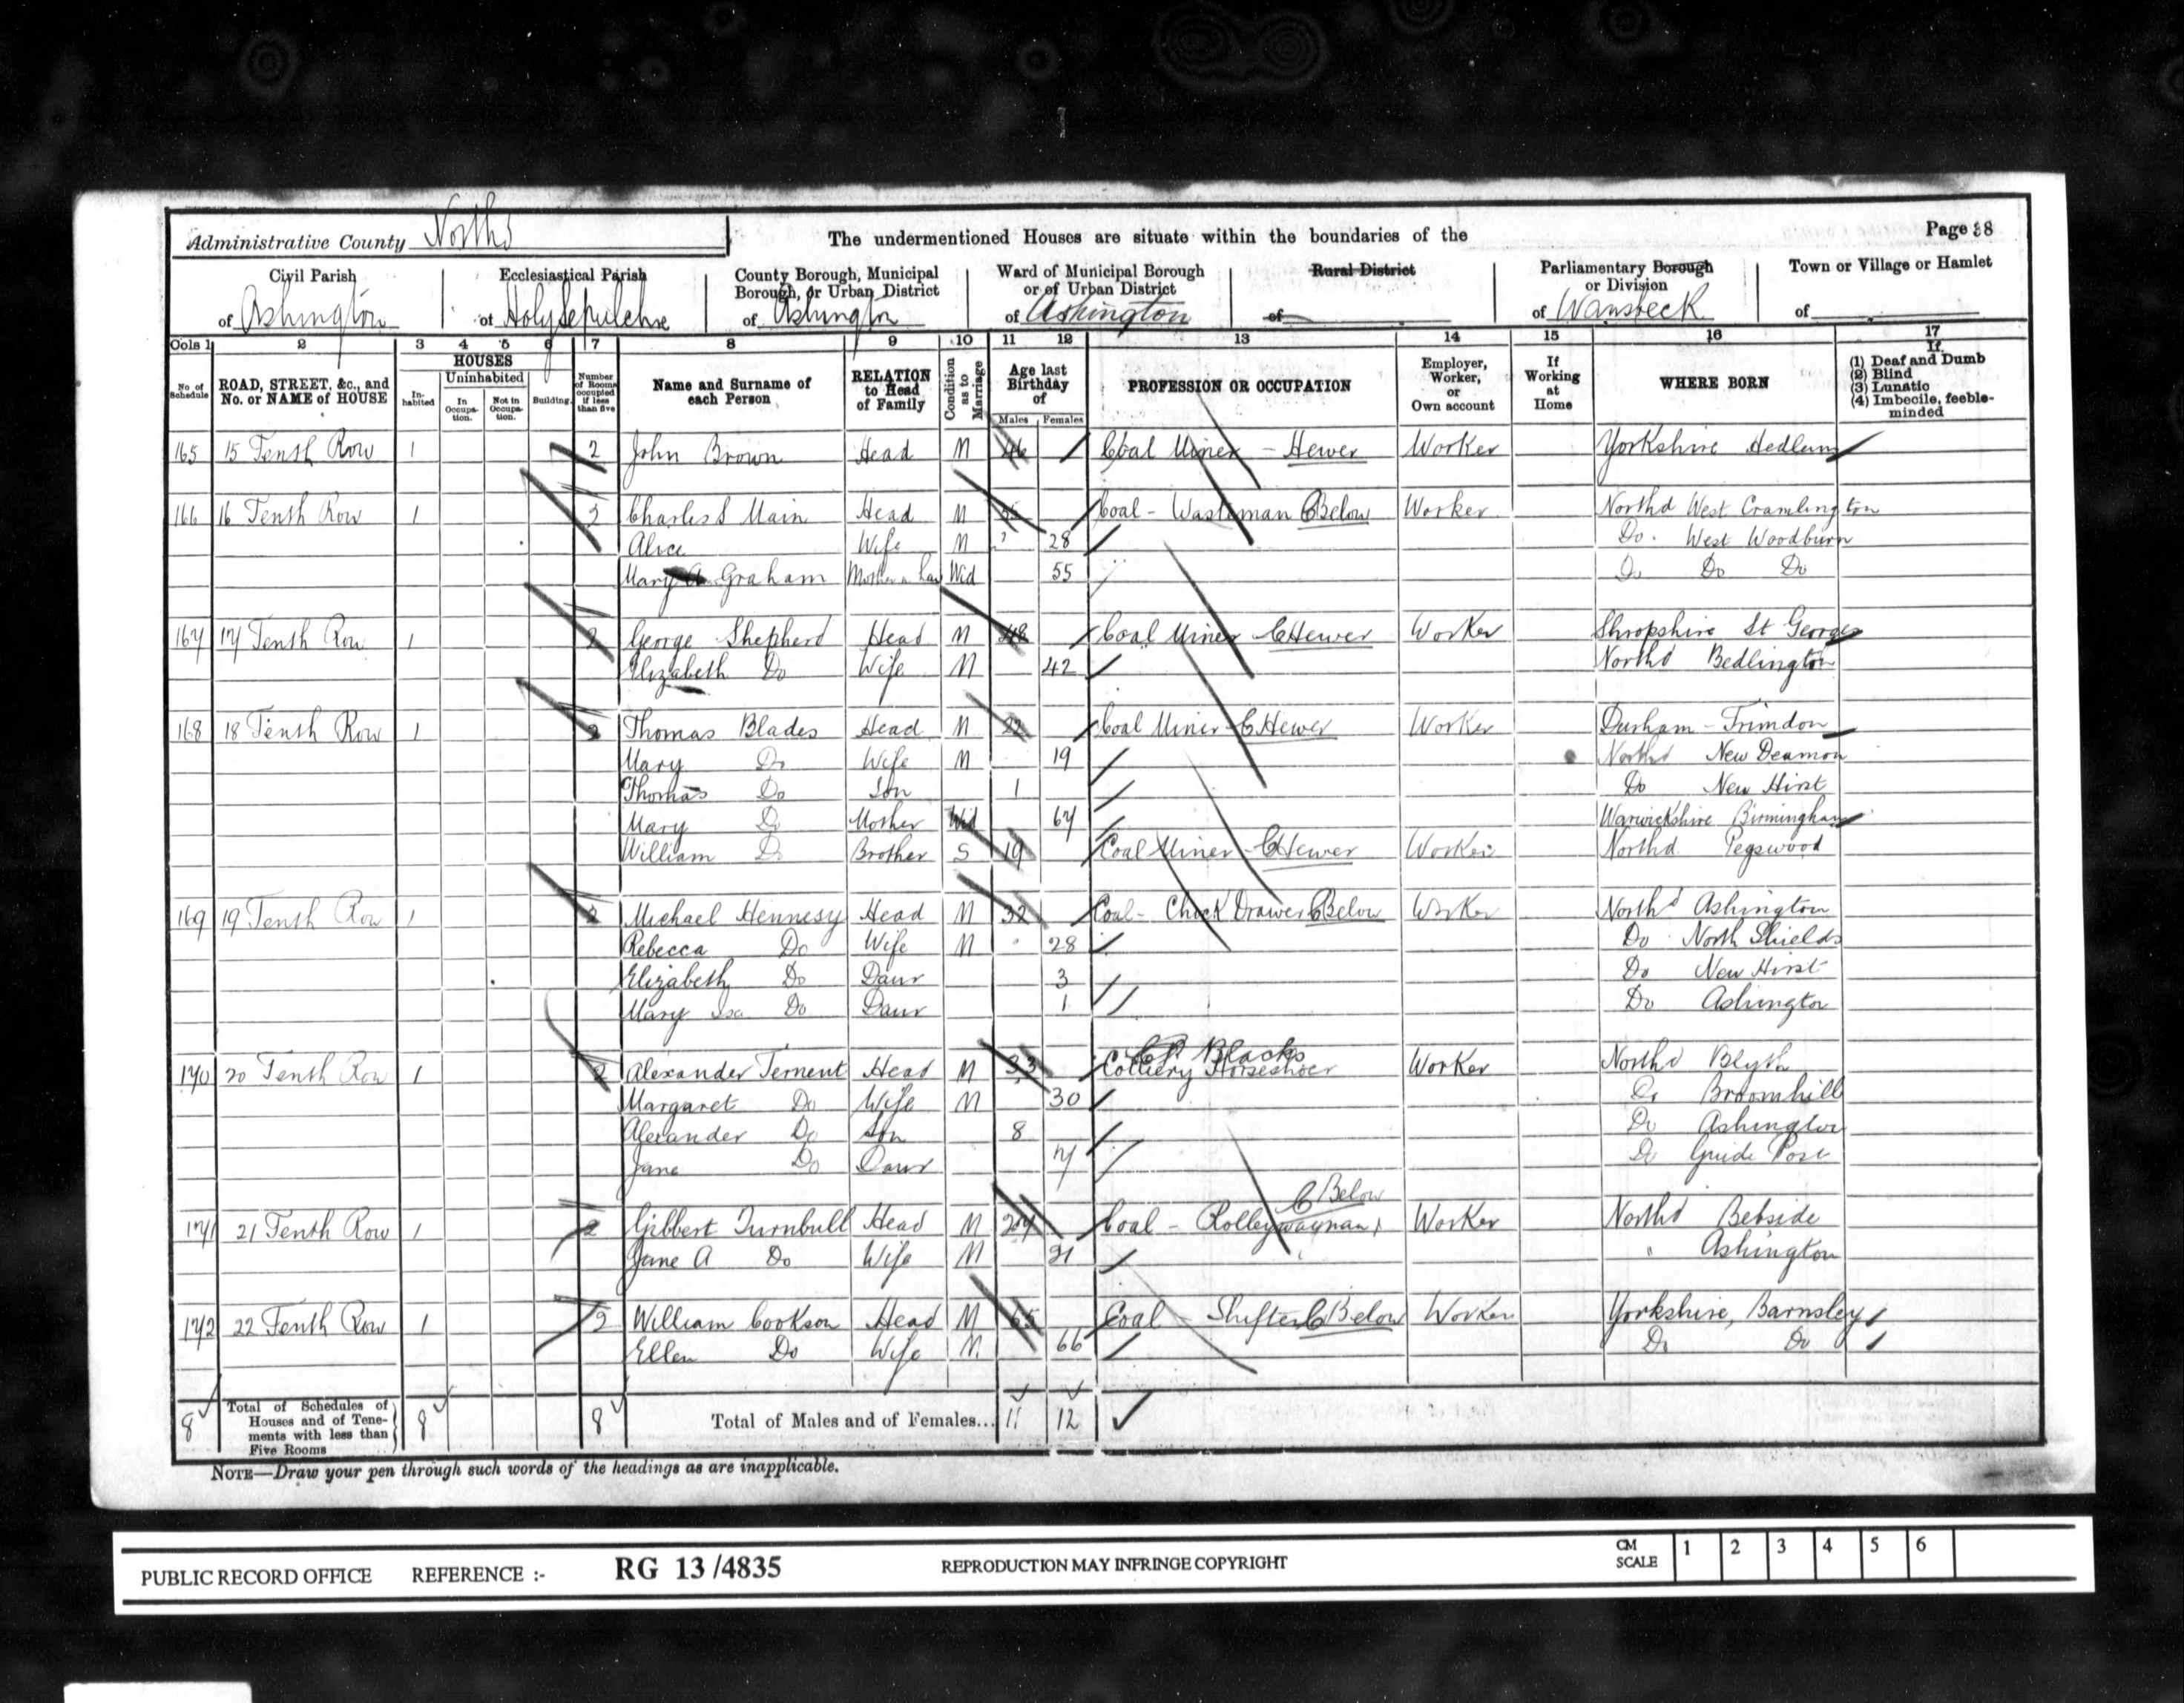 Administrative County Northd
The undermentioned Houses are situate within the boundaries of the
Page 28
Civil Parish of Ashington
Ecclesiastical Parish of Holy Sepulchre
County Borough, Municipal Borough, or Urban District of Ashington
Ward of Municipal Borough or of Urban District of Ashington
Rural District of
Parliamentary Borough or Division of Wansbeck
Town or Village or Hamlet of
Cols 1 2 3 4 5 6 7 8 9 10 11 12 13 14 15 16 17
No of Schedule
ROAD, STREET, &c., and No. or NAME of HOUSE
HOUSES
Inhabited
Uninhabited
In Occupation.
Not in Occupation.
Building.
Number of Rooms occupied if less than five
Name and Surname of each Person
RELATION to Head of Family
Condition as to Marriage
Age last Birthday of
Males Females
PROFESSION OR OCCUPATION
Employer, Worker, or Own account
If Working at Home
WHERE BORN
If
(1) Deaf and Dumb
(2) Blind
(3) Lunatic
(4) Imbecile, feeble-minded
165 15 Tenth Row 1 2 John Brown Head M 46 Coal Miner - Hewer Worker Yorkshire
166 16 Tenth Row 1 Charles S Main Head M Coal - Wasteman Below Worker Northd West Cramlington
Alice Wife M 28 Do. West Woodburn
Mary Graham Mother in Law Wid 55 Do Do Do
167 17 Tenth Row 1 2 George Shepherd Head M 48 Coal Miner Hewer Worker Shropshire St Georges
Elizabeth Do Wife M 42 Northd Bedlington
168 18 Tenth Row 1 Thomas Blades Head M 22 Coal Miner Hewer Worker Durham - Trimdon
Mary Do Wife M 19 Northd New Deamon
Thomas Do Son 1 Do New Hirst
Mary Do Mother Wid 67 Warwickshire Birmingham
William Do Brother S 19 Coal Miner Hewer Worker Northd Pegswood
169 19 Tenth Row 1 2 Michael Hennesy Head M 32 Coal - Chock Drawer Below Worker Northd Ashington
Rebecca Do Wife M 28 Do North Shields
Elizabeth Do Daur 3 Do New Hirst
Mary Isa Do Daur 1 Do Ashington
170 20 Tenth Row 1 2 Alexander Ternent Head M 33 Blacks Colliery Horseshoer Worker Northd Blyth
Margaret Do Wife M 30 Do Broomhill
Alexander Do Son 8 Do Ashington
Jane Do Daur 7 Do Guide Post
171 21 Tenth Row 1 2 Gibbert Turnbull Head M 27 Coal - Rolleywayman Below Worker Northd Bebside
Jane A Do Wife M 21 " Ashington
172 22 Tenth Row 1 2 William Cookson Head M 65 Coal - Shifter Below Worker Yorkshire, Barnsley
Ellen Do Wife M 66 Do Do
8 Total of Schedules of Houses and of Tenements with less than Five Rooms 8 8 Total of Males and of Females... 11 12
NOTE—Draw your pen through such words of the headings as are inapplicable.
PUBLIC RECORD OFFICE REFERENCE :- RG 13/4835 REPRODUCTION MAY INFRINGE COPYRIGHT CM SCALE 1 2 3 4 5 6